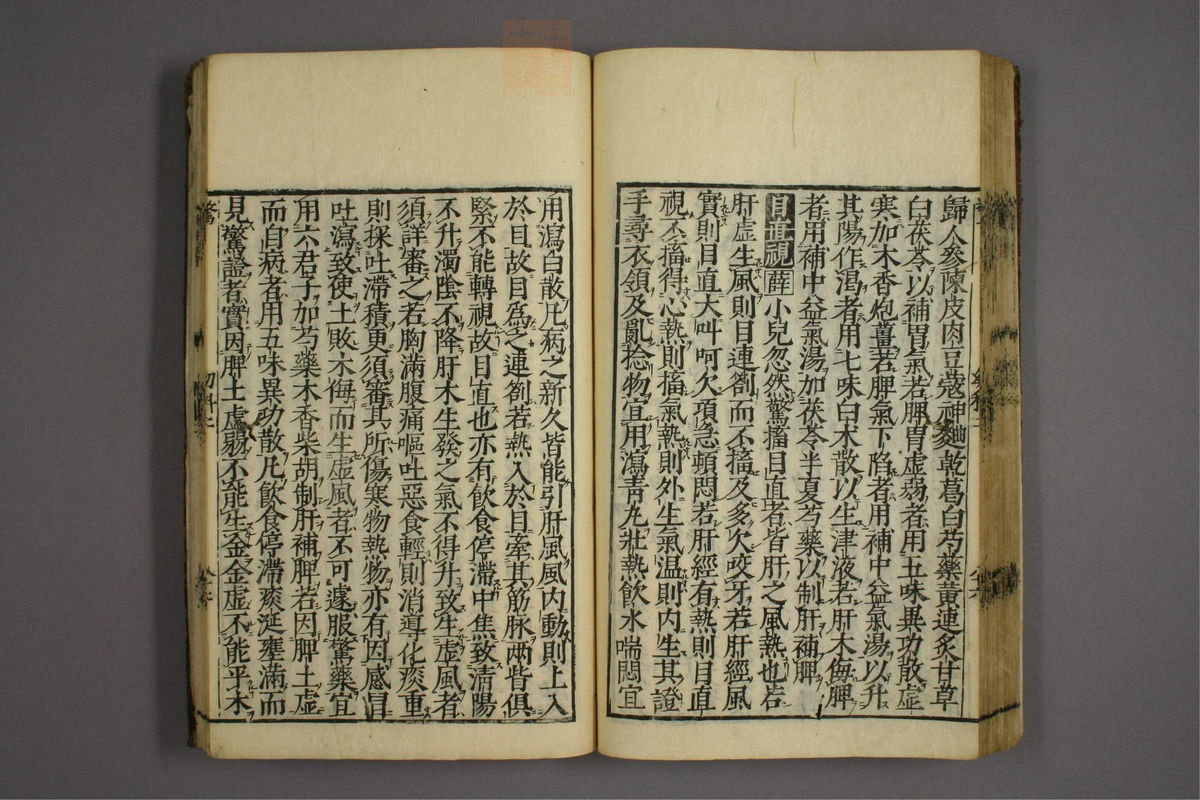 歸人參陳皮肉豆蔻神麯乾葛白芍藥黃連炙甘草
白茯苓以補胃氣若脾胃虛弱者用五味異功散虛
寒加木香炮薑若脾氣下陷者用補中益氣湯以升
其陽作渴者用七味白朮散以生津液若肝木侮脾
者用補中益氣湯加茯苓半夏芍藥以制肝補脾
目直視 薛 小兒忽然驚搐目直者皆肝之風熱也若
肝虛生風則目連劄而不搐及多欠咬牙若肝經風
實則目直大叫呵欠項急頓悶若肝經有熱則目直
視不搐得心熱則搐氣熱則外生氣温則内生其證
手尋衣領及亂捻物宜用瀉青丸壯熱飲水喘悶宜
用瀉白散凡病之新久皆能引肝風風内動則上入
於目故目爲之連劄若熱入於目牽其筋脉兩眥俱
緊不能轉視故目直也亦有飲食停滯中焦致清陽
不升濁陰不降肝木生發之氣不得升致生虛風者
須詳審之若胸滿腹痛嘔吐惡食輕則消導化痰重
則探吐滯積更須審其所傷寒物熱物亦有因感冒
吐瀉致使土敗木侮而生虛風者不可遽服驚藥宜
用六君子加芍藥木香柴胡制肝補脾若因脾土虛
而自病者用五味異功散凡飲食停滯痰涎壅滿而
見驚證者實因脾土虛弱不能生金金虛不能乎木